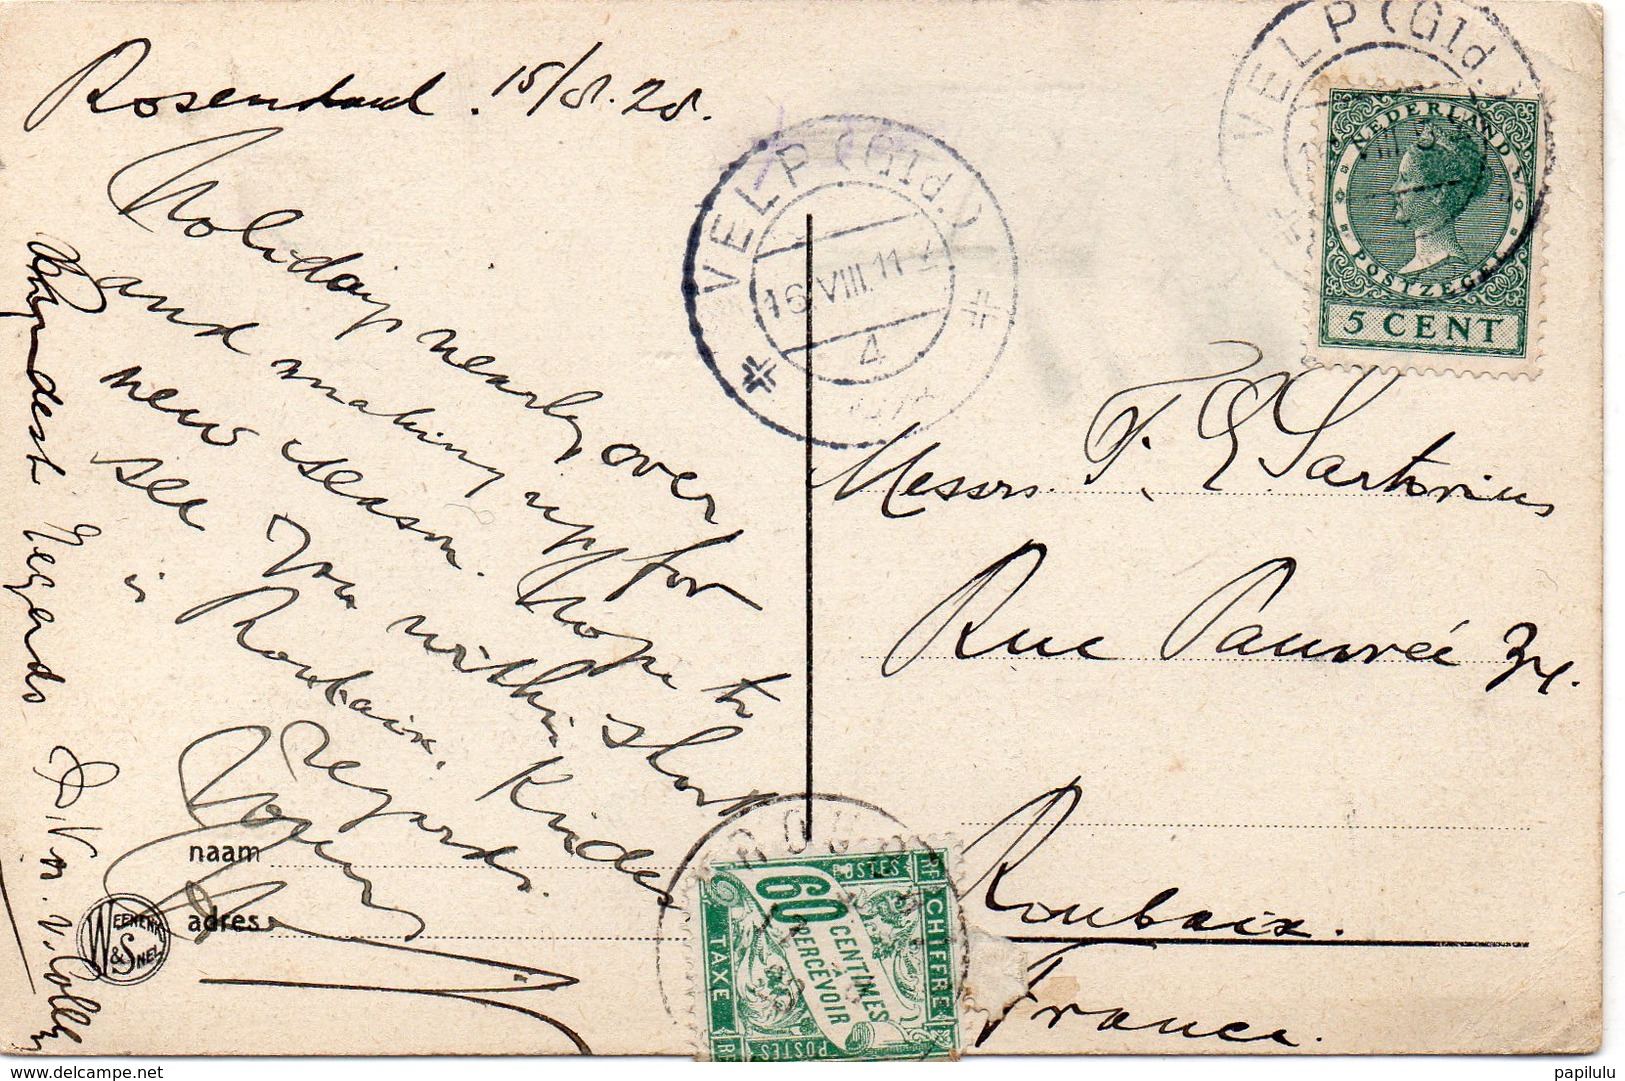 Rosendael. 15/8.28.
Holiday nearly over
and making up for
new season. Hope to
see you within short
in Roubaix. Kindest
regards.
Yours
Kindest Regards
naam
adres
WEENENK & SNEL
VELP (Gld.)
16 VIII.11
4
VELP (Gld.)
VIII
NEDERLAND
POSTZEGEL
5 CENT
Messrs. F. E. Sartorius
Rue Pauvrée 34.
Roubaix.
France.
RF CHIFFRE
POSTES
60 CENTIMES
À
PERCEVOIR
TAXE
POSTES
RF
delcampe.net
papilulu